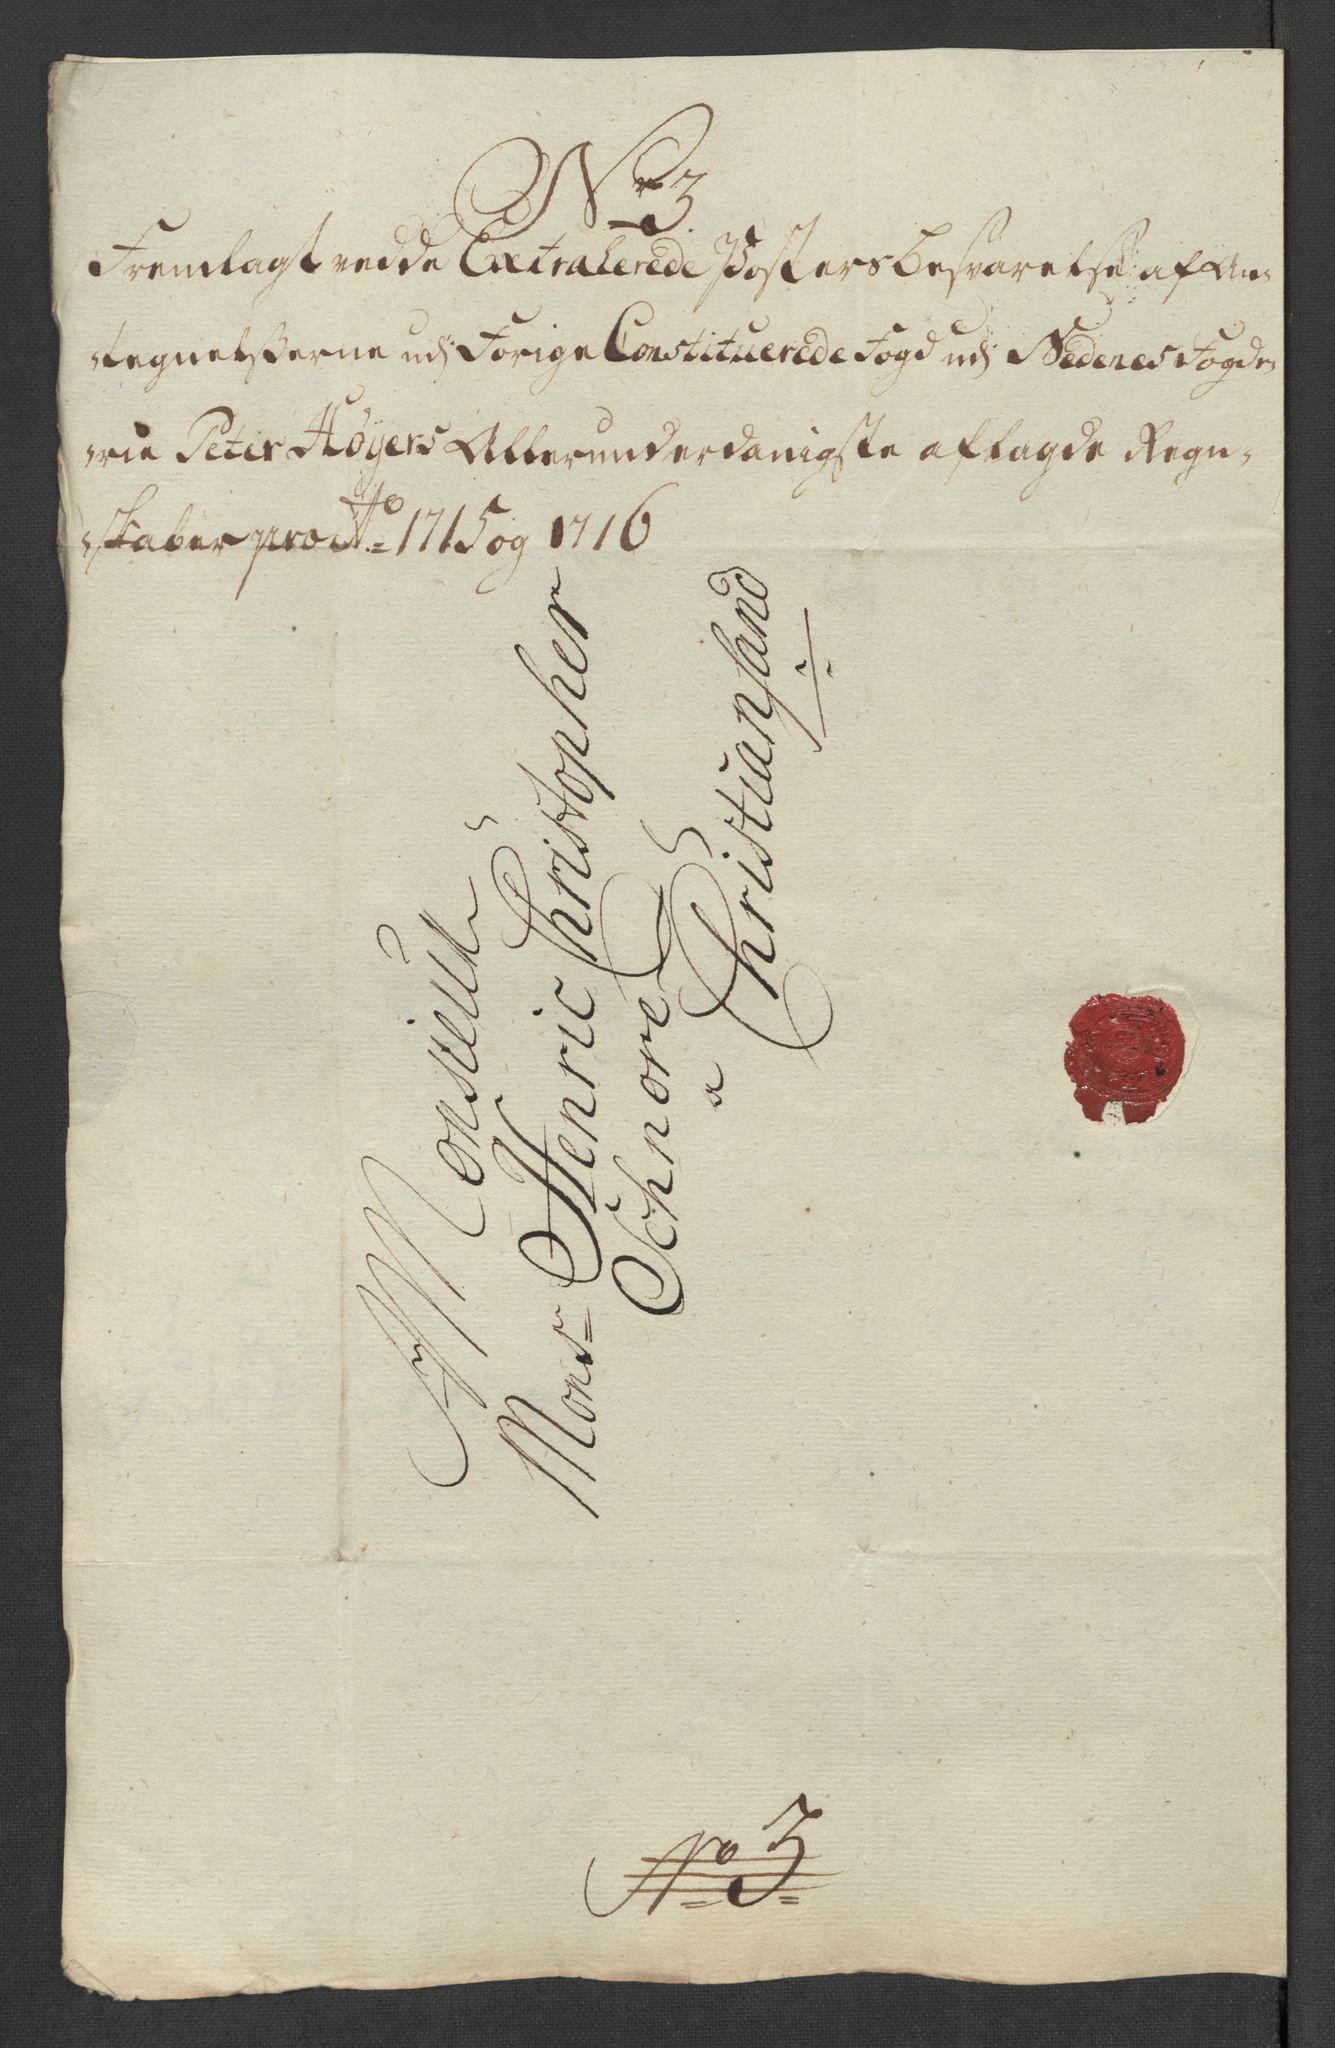 Nr 3.
Fremlagt vedde Extraherede Posters besvarelse af An-
tegnelsserne udj Forige Constituerede Fogd udj Nedenes Fogde-
rie Peter Høyers Allerunderdanigste aflagde Regn-
skaber pro Ao 1715 og 1716
Monsieur
Monsr Henric Christopher
Schnore
a Christiansand
No 3